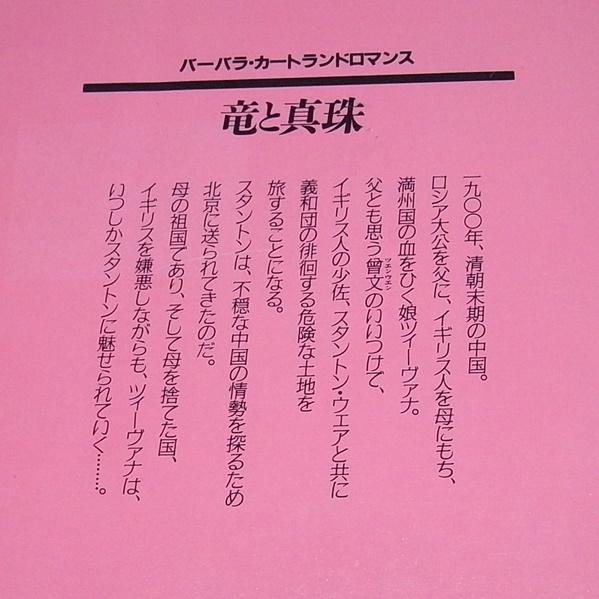 バーバラ・カートランドロマンス
竜と真珠
一九〇〇年、清朝末期の中国。
ロシア大公を父に、イギリス人を母にもち、
満州国の血をひく娘ツィーヴァナ。
父とも思う曾文のいいつけで、
ツエンウエン
イギリス人の少佐、スタントン・ウェアと共に
義和団の徘徊する危険な土地を
旅することになる。
スタントンは、不穏な中国の情勢を探るため
北京に送られてきたのだ。
母の祖国であり、そして母を捨てた国、
イギリスを嫌悪しながらも、ツィーヴァナは、
いつしかスタントンに魅せられていく………。